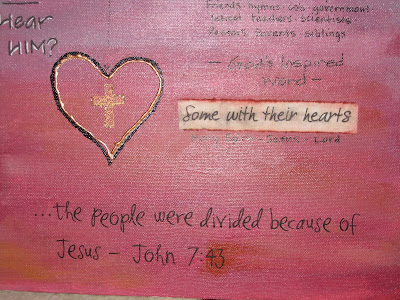 Hear
HIM?
friends - hymns - CDs - government
school teachers - scientists
Pastors Parents siblings
- God's Inspired
Word -
Some with their hearts
- Lord
...the people were divided because of
Jesus - John 7:43